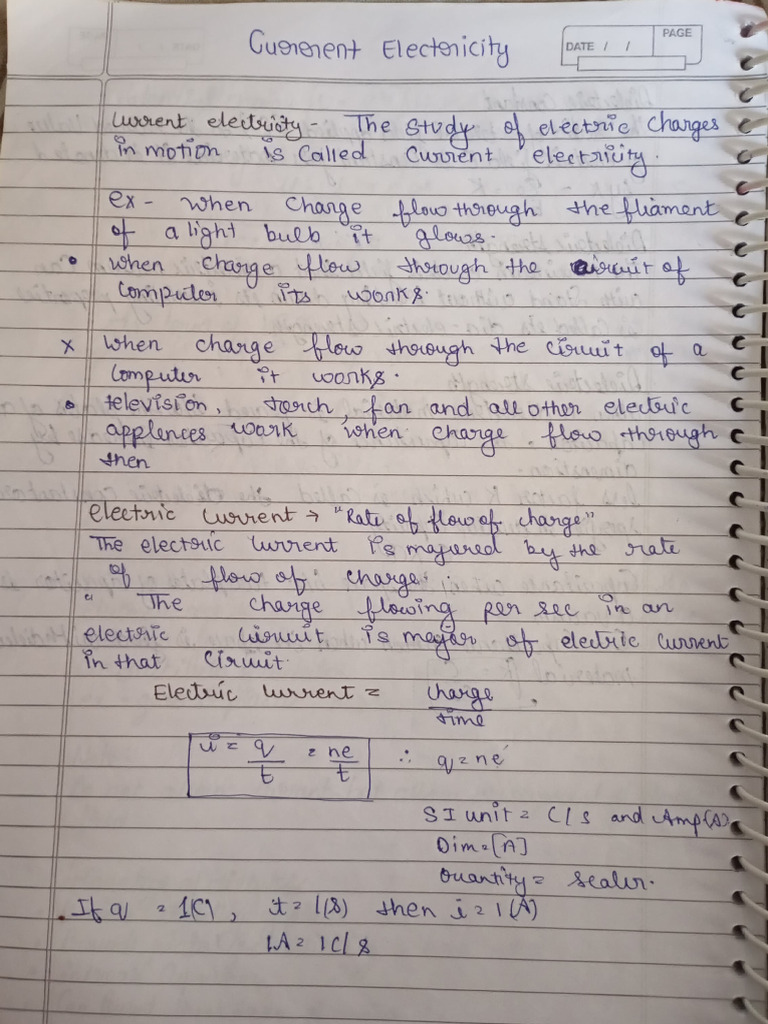 Current Electricity
DATE / /
PAGE
Current electricity - The study of electric charges
in motion is called current electricity.
ex - when charge flow through the fliament
of a light bulb it glows.
• when charge flow through the circuit of
computer its works.
x when charge flow through the circuit of a
computer it works.
• television, torch, fan and all other electric
applences work when charge flow through
then
electric current → "Rate of flow of charge"
The electric current is majured by the rate
of flow of charge.
" The charge flowing per sec in an
electric circuit is mejar of electric current
in that circuit.
Electric current = charge
time
i = q/t = ne/t ∴ q = ne
SI unit = C/s and Amp(A)
Dim = [A]
Quantity = scalar.
. If q = 1(C), t = 1(s) then i = 1(A)
1A = 1C/s